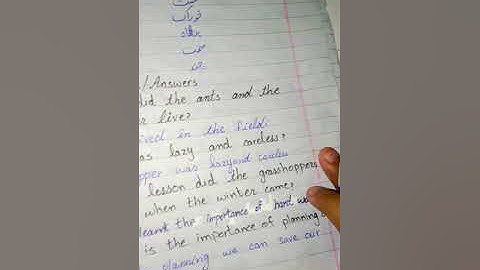 خوراک
پناہ
محنت
/Answers
did the ants and the
r live?
ived in the field.
as lazy and careless?
pper was lazy and careless
lesson did the grasshoppers
when the winter came?
learnt the importance of hard
is the importance of planning
planning we can save our